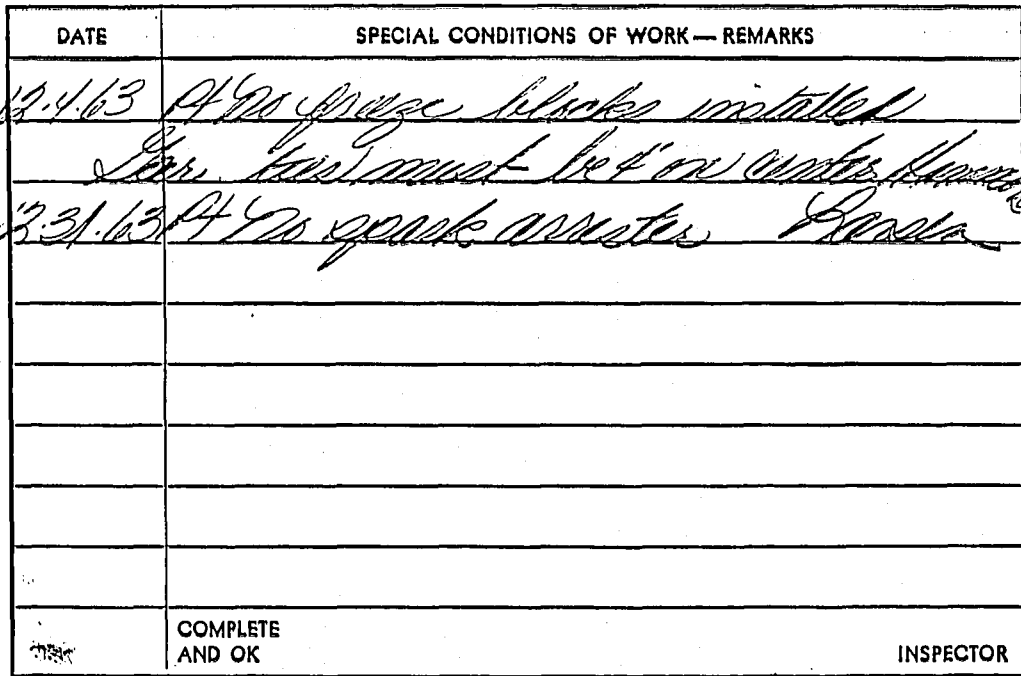 DATE SPECIAL CONDITIONS OF WORK — REMARKS
12.4.63 Pt No frieze blocks installed
must be 4" on center
12.31.63 Pt No spark arrester
COMPLETE
AND OK INSPECTOR